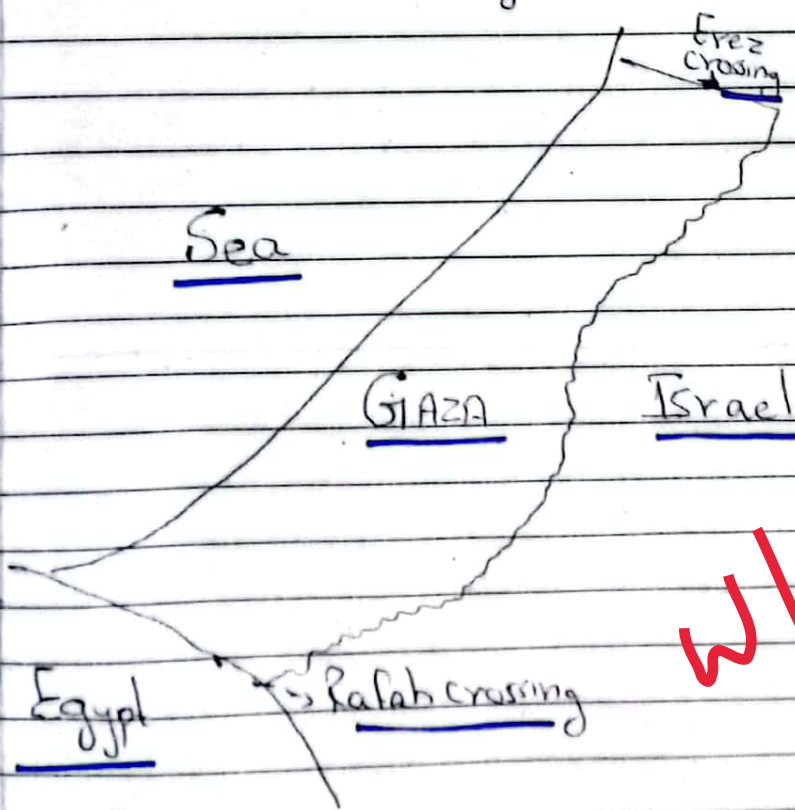 Erez
crossing
Sea
GAZA
Israel
Egypt
Rafah crossing